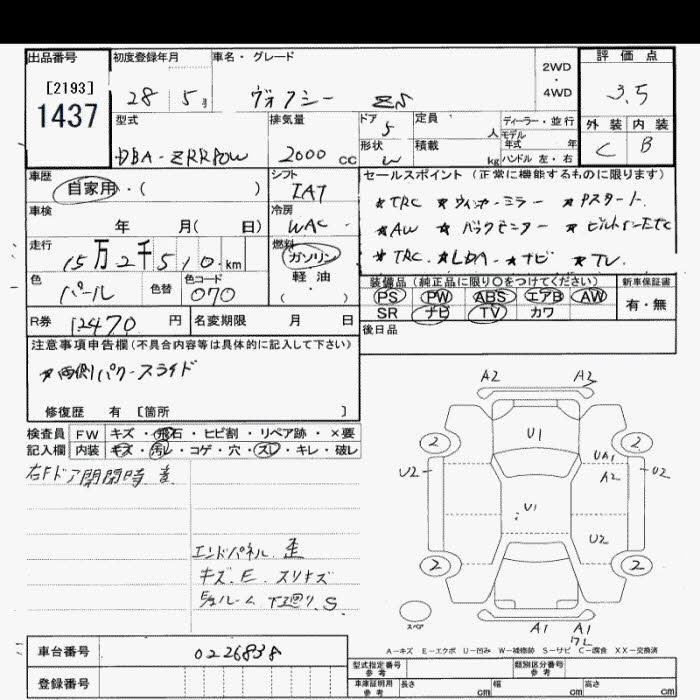 出品番号 初度登録年月 車名・グレード 2WD・4WD 評価点
[2193]
1437
28 5月 ヴォクシー ZS 3.5
型式 排気量 ドア 定員 ディーラー・並行 外装 内装
DBA-ZRR80W 2000cc 5 人 モデル年式 年 C B
形状 W 積載 kg ハンドル 左・右
車歴 シフト セールスポイント (正常に機能するものに限ります)
自家用・( ) IAT
★TRC ★ウィンカーミラー ★Pスタート
車検 年 月( 日) 冷房 WAC
★AW ★バックモニター ★ビルトインETC
走行 15万2千510km 燃料 ガソリン 軽油 ・( )
★TRC ★LDA ★ナビ ★TV
色 パール 色替 色コード 070
装備品 (純正品に限り○をつけてください) 新車保証書
PS PW ABS エアB AW 有・無
SR ナビ TV カワ
R券 12470円 名変期限 月 日 後日品
注意事項申告欄(不具合内容等は具体的に記入して下さい)
★両側パワースライド
修復歴 有 [箇所 ]
検査員 FW キズ・飛石・ヒビ割・リペア跡・×要
記入欄 内装 キズ・汚レ・コゲ・穴・スレ・キレ・破レ
右Fドア開閉時
エンドパネル 歪
キズ.E スリキズ
下廻リ.S
A2 A3
2 U1 2
U2 UA1 U2
A2
U1
U2
2 2
スペア
A1 A1
A-キズ E-エクボ U-凹み W-補修跡 S-サビ C-腐食 XX-交換済
車台番号 0226838
型式指定番号 参考 類別区分番号 参考
登録番号
車庫証明用 参考 長さ cm 幅 cm 高さ cm